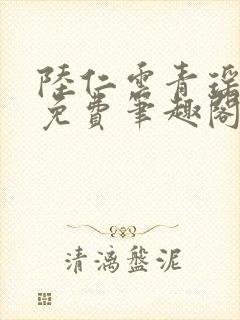 陸仁雲青瑤
免費筆趣閣
清漓盤泥